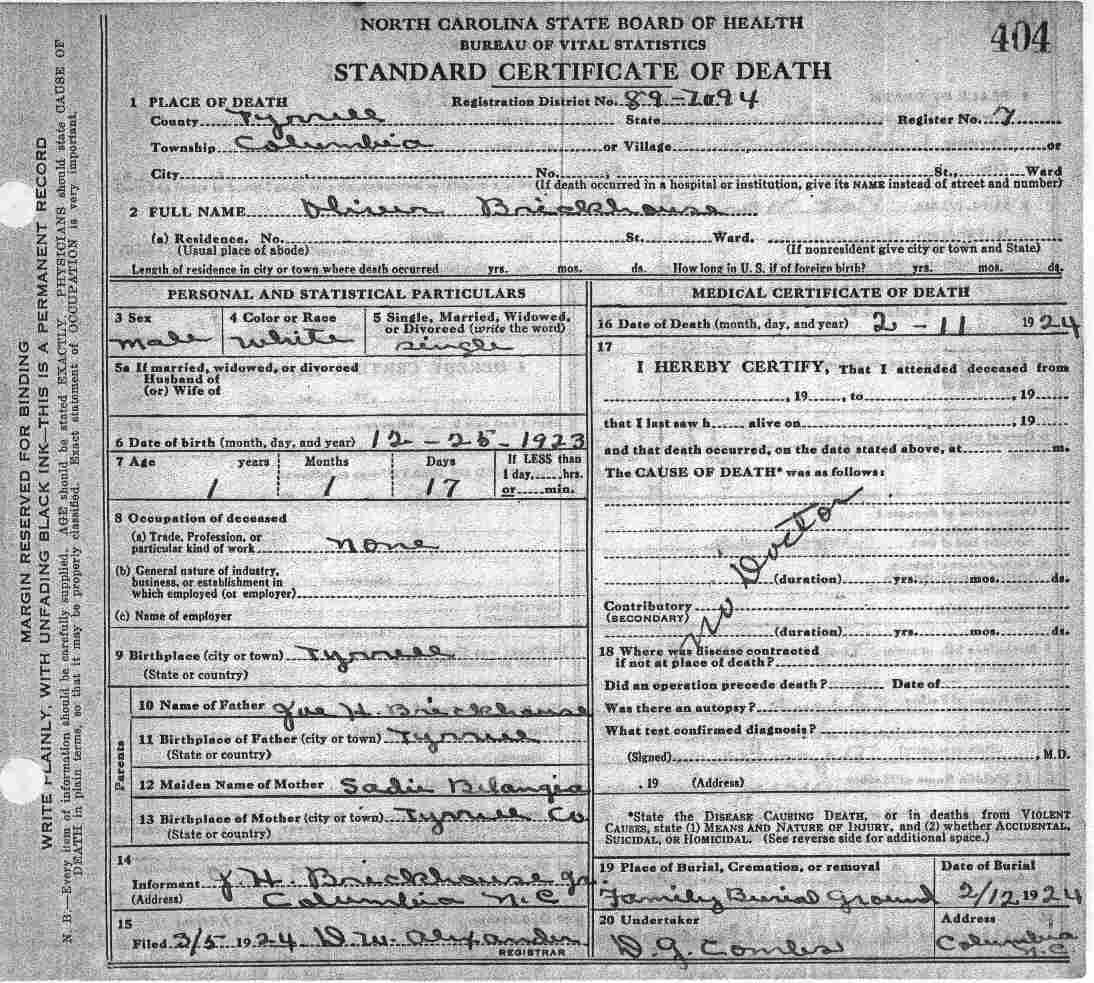 NORTH CAROLINA STATE BOARD OF HEALTH
BUREAU OF VITAL STATISTICS
404
STANDARD CERTIFICATE OF DEATH
1 PLACE OF DEATH Registration District No. 89-7094
County Tyrrell State Register No. 7
Township Columbia or Village or
City No. St., Ward
(If death occurred in a hospital or institution, give its NAME instead of street and number)
2 FULL NAME Oliver Brickhouse
(a) Residence. No. St., Ward.
(Usual place of abode) (If nonresident give city or town and State)
Length of residence in city or town where death occurred yrs. mos. ds. How long in U. S. if of foreign birth? yrs. mos. ds.
PERSONAL AND STATISTICAL PARTICULARS
3 Sex 4 Color or Race 5 Single, Married, Widowed, or Divorced (write the word)
male white single
5a If married, widowed, or divorced
Husband of
(or) Wife of
6 Date of birth (month, day, and year) 12-25-1923
7 Age years Months Days If LESS than
1 day, hrs.
or min.
1 1 17
8 Occupation of deceased
(a) Trade, Profession, or
particular kind of work none
(b) General nature of industry,
business, or establishment in
which employed (or employer)
(c) Name of employer
9 Birthplace (city or town) Tyrrell
(State or country)
Parents
10 Name of Father Joe H. Brickhouse
11 Birthplace of Father (city or town) Tyrrell
(State or country)
12 Maiden Name of Mother Sadie Belangia
13 Birthplace of Mother (city or town) Tyrrell Co
(State or country)
14
Informant J. H. Brickhouse Jr
(Address) Columbia N.C
15
Filed 3/5 1924 D. W. Alexander
REGISTRAR
MEDICAL CERTIFICATE OF DEATH
16 Date of Death (month, day, and year) 2-11 1924
17
I HEREBY CERTIFY, That I attended deceased from
, 19 , to , 19
that I last saw h alive on , 19
and that death occurred, on the date stated above, at m.
The CAUSE OF DEATH* was as follows:
No Doctor
(duration) yrs. mos. ds.
Contributory
(SECONDARY)
(duration) yrs. mos. ds.
18 Where was disease contracted
if not at place of death?
Did an operation precede death? Date of
Was there an autopsy?
What test confirmed diagnosis?
(Signed) , M.D.
, 19 (Address)
*State the DISEASE CAUSING DEATH, or in deaths from VIOLENT
CAUSES, state (1) MEANS AND NATURE OF INJURY, and (2) whether ACCIDENTAL,
SUICIDAL, OR HOMICIDAL. (See reverse side for additional space.)
19 Place of Burial, Cremation, or removal Date of Burial
Family Burial Ground 2/12 1924
20 Undertaker Address
D. G. Combs Columbia
N.C
MARGIN RESERVED FOR BINDING
WRITE PLAINLY, WITH UNFADING BLACK INK—THIS IS A PERMANENT RECORD
N. B.—Every item of information should be carefully supplied. AGE should be stated EXACTLY. PHYSICIANS should state CAUSE OF
DEATH in plain terms, so that it may be properly classified. Exact statement of OCCUPATION is very important.